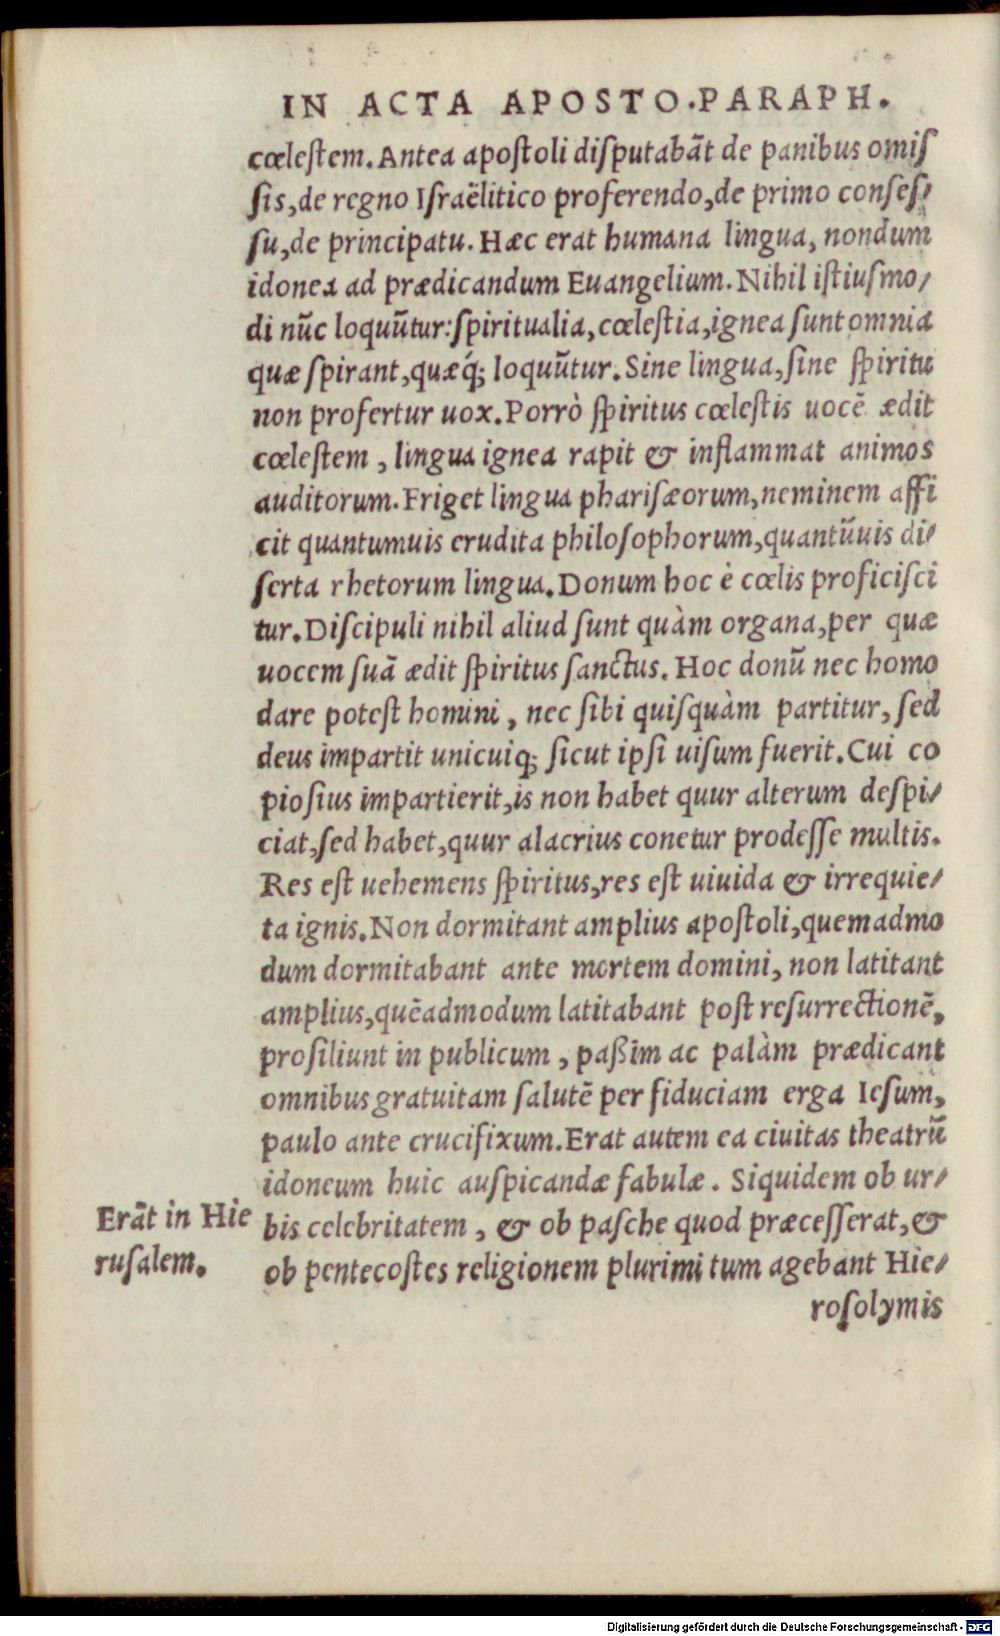 IN ACTA APOSTO.PARAPH.
cœleſtem.Antea apoſtoli diſputabāt de panibus omiſ
ſis,de regno Iſraëlitico proferendo,de primo conſeſ⸗
ſu,de principatu. Hæc erat humana lingua, nondum
idonea ad prædicandum Euangelium. Nihil iſtiuſmo⸗
di nūc loquūtur:ſpiritualia,cœleſtia,ignea ſunt omnia
quæ ſpirant,quæq́; loquūtur. Sine lingua,ſine ſpiritu
non profertur uox.Porrò ſpiritus cœleſtis uocē ædit
cœleſtem , lingua ignea rapit & inflammat animos
auditorum. Friget lingua phariſæorum,neminem affi
cit quantumuis erudita philoſophorum,quantūuis di⸗
ſerta rhetorum lingua. Donum hoc è cœlis proficiſci
tur. Diſcipuli nihil aliud ſunt quàm organa,per quæ
uocem ſuā ædit ſpiritus ſanctus. Hoc donū nec homo
dare poteſt homini , nec ſibi quiſquàm partitur, ſed
deus impartit unicuiq; ſicut ipſi uiſum fuerit. Cui co
pioſius impartierit,is non habet quur alterum deſpi⸗
ciat,ſed habet,quur alacrius conetur prodeſſe multis.
Res eſt uehemens ſpiritus,res eſt uiuida & irrequie⸗
ta ignis. Non dormitant amplius apoſtoli,quemadmo
dum dormitabant ante mortem domini, non latitant
amplius,quēadmodum latitabant poſt reſurrectionē,
proſiliunt in publicum , paßim ac palàm prædicant
omnibus gratuitam ſalutē per fiduciam erga Ieſum,
paulo ante crucifixum.Erat autem ea ciuitas theatrū
idoneum huic auſpicandæ fabulæ. Siquidem ob ur⸗
Erāt in Hie
ruſalem.
bis celebritatem , & ob paſche quod præceſſerat,&
ob pentecoſtes religionem plurimi tum agebant Hie⸗
roſolymis
Digitalisierung gefördert durch die Deutsche Forschungsgemeinschaft - DFG